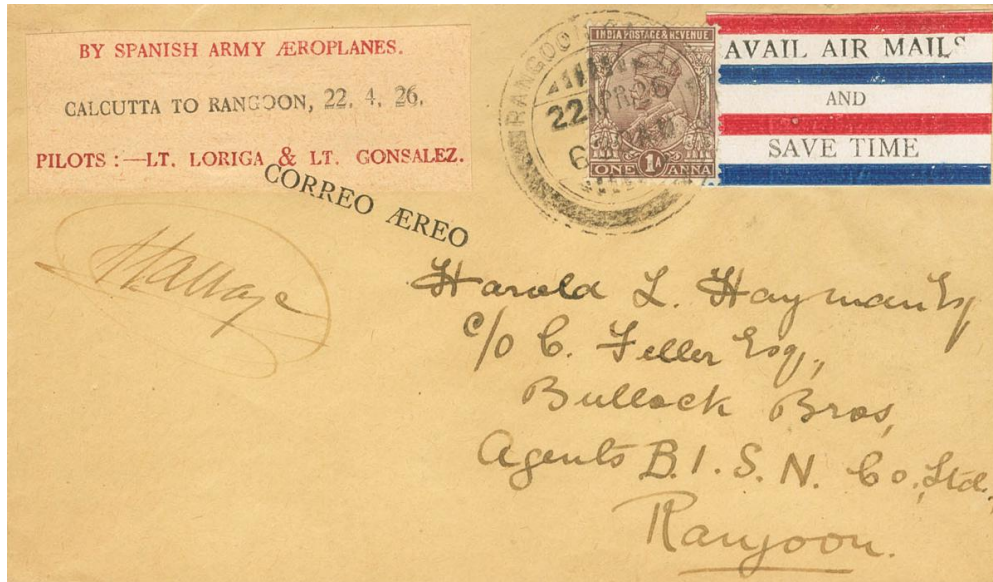 BY SPANISH ARMY ÆROPLANES.
CALCUTTA TO RANGOON, 22. 4. 26.
PILOTS :—LT. LORIGA & LT. GONSALEZ.
CORREO ÆREO
RANGOON
22 APR 26
INDIA POSTAGE & REVENUE
ONE 1A ANNA
AVAIL AIR MAILS
AND
SAVE TIME
Harold L. Hayman Esq
c/o C. Feller Esq.,
Bullock Bros,
Agents B.I.S.N. Co. Ltd.,
Rangoon.